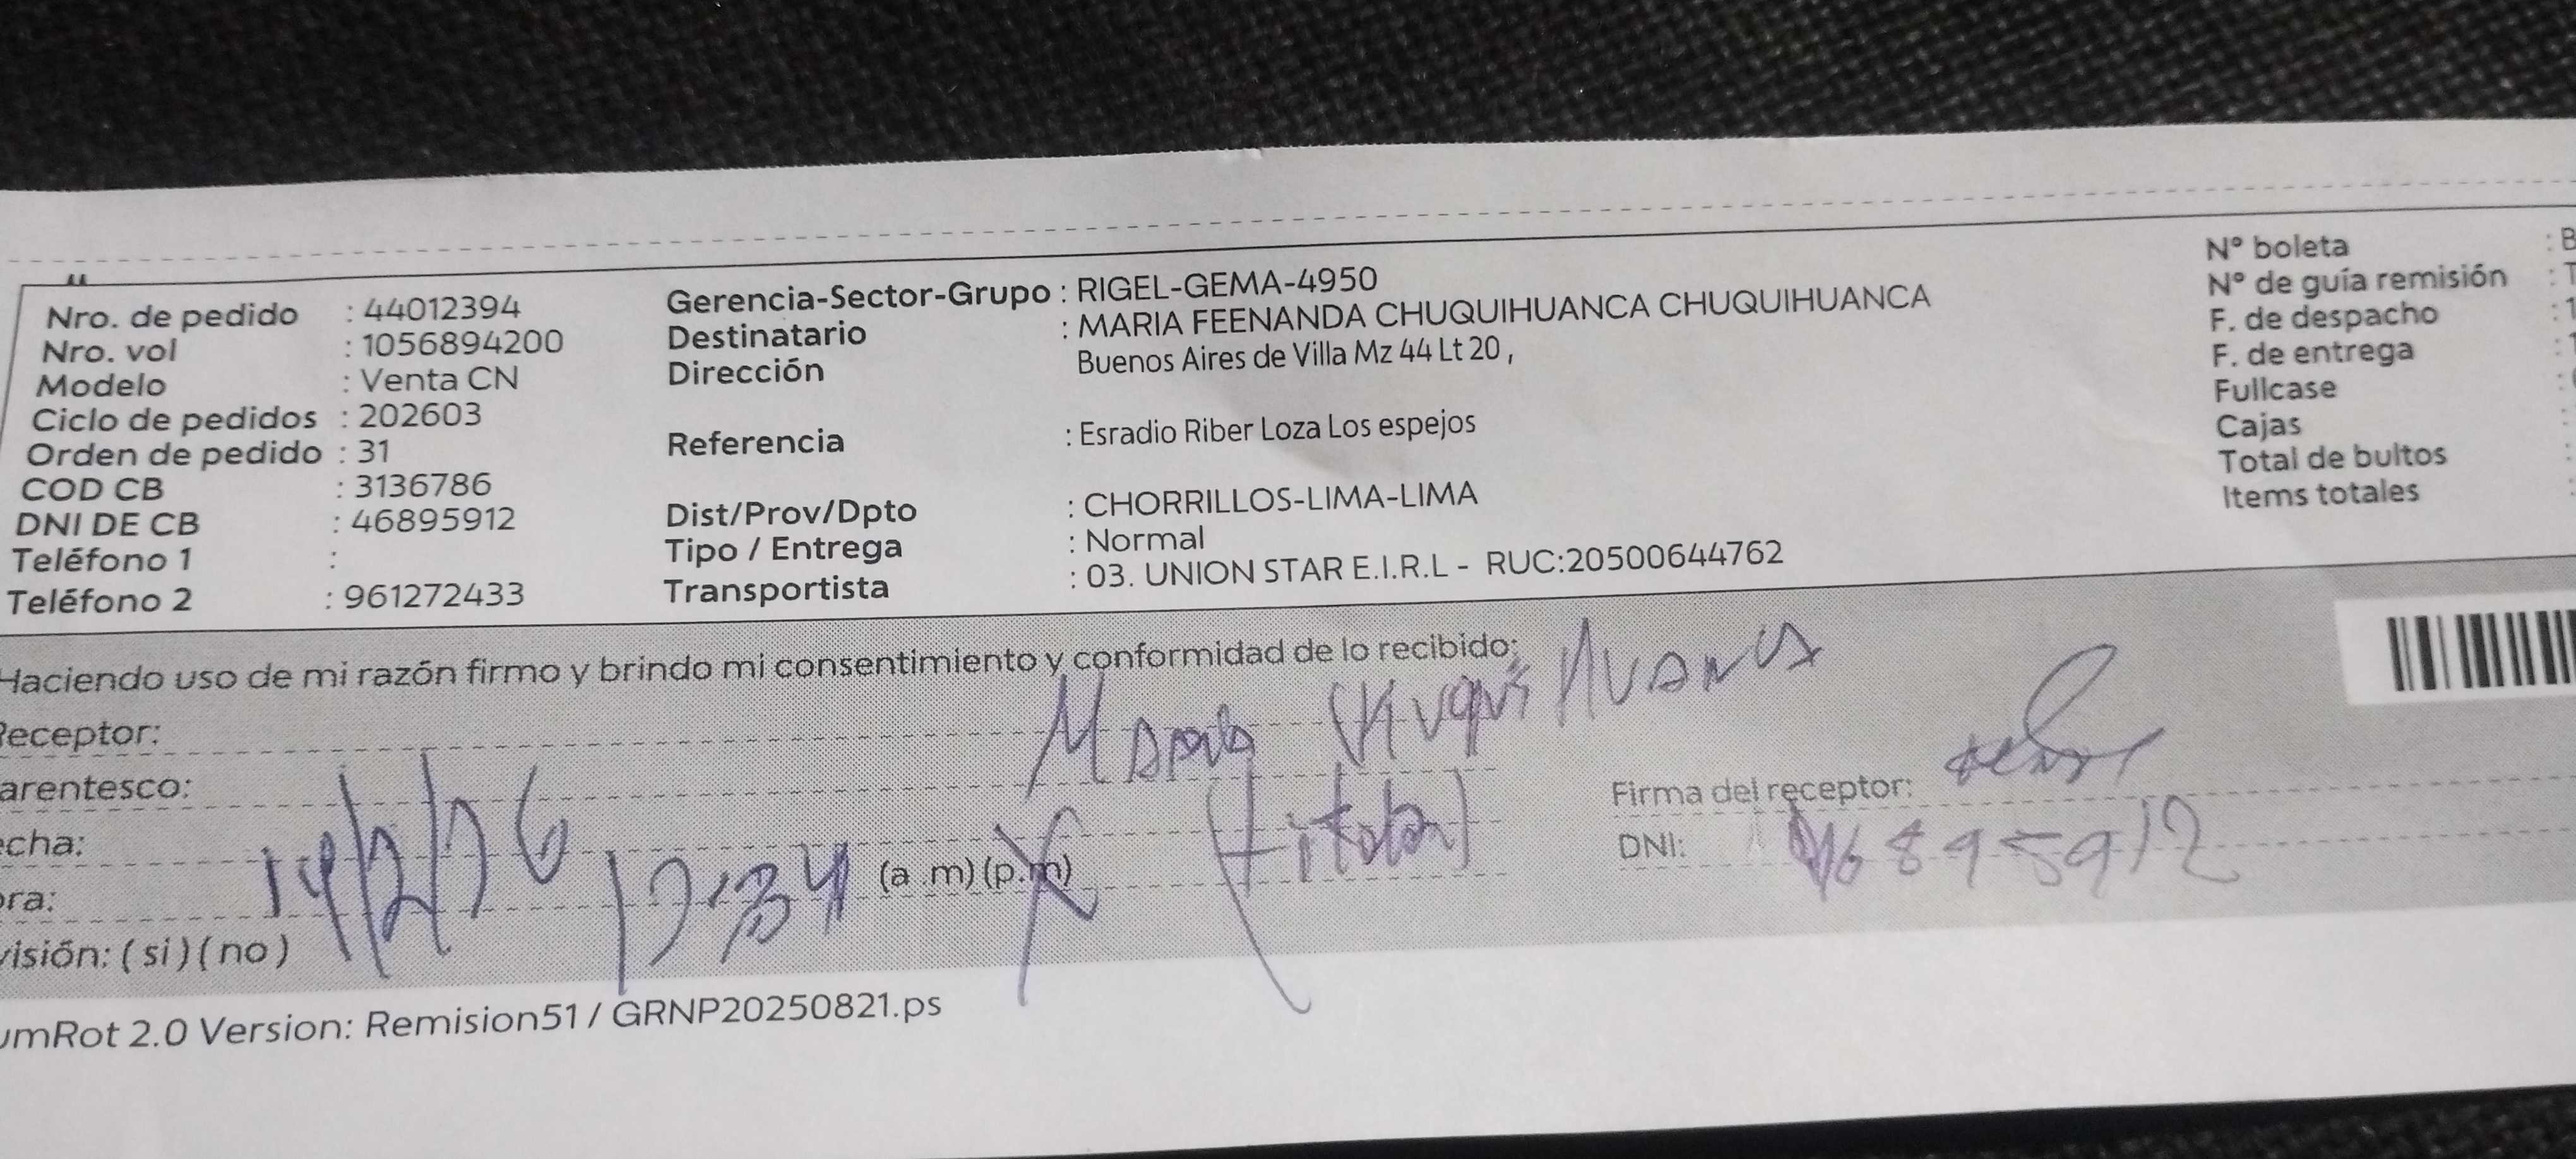 Nro. de pedido : 44012394
Nro. vol : 1056894200
Modelo : Venta CN
Ciclo de pedidos : 202603
Orden de pedido : 31
COD CB : 3136786
DNI DE CB : 46895912
Teléfono 1 :
Teléfono 2 : 961272433
Gerencia-Sector-Grupo : RIGEL-GEMA-4950
Destinatario : MARIA FEENANDA CHUQUIHUANCA CHUQUIHUANCA
Dirección Buenos Aires de Villa Mz 44 Lt 20 ,
Referencia : Esradio Riber Loza Los espejos
Dist/Prov/Dpto : CHORRILLOS-LIMA-LIMA
Tipo / Entrega : Normal
Transportista : 03. UNION STAR E.I.R.L - RUC:20500644762
N° boleta : B
N° de guía remisión : T
F. de despacho : 1
F. de entrega : 1
Fullcase :
Cajas :
Total de bultos :
Items totales :
Haciendo uso de mi razón firmo y brindo mi consentimiento y conformidad de lo recibido:
Receptor: Maria
arentesco: (titular)
Firma del receptor:
echa: 14/2/26
DNI: 46895912
ora: (a .m) (p.m)
visión: ( si ) ( no )
umRot 2.0 Version: Remision51 / GRNP20250821.ps